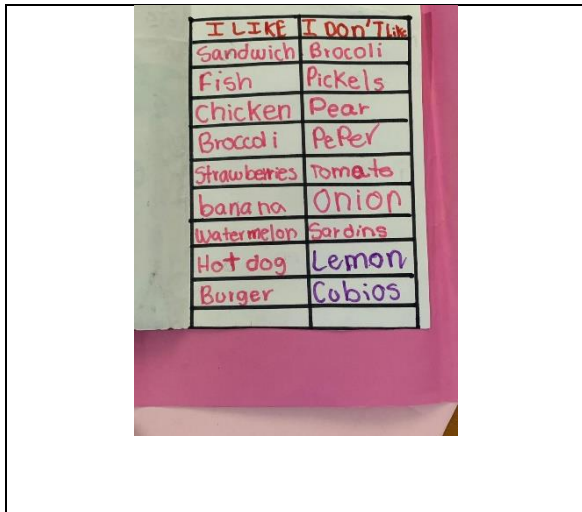 I LIKE I DON'T like
Sandwich Brocoli
Fish Pickels
Chicken Pear
Broccoli PePer
Strawberries Tomato
banana Onion
Watermelon Sardins
Hot dog Lemon
Burger Cubios